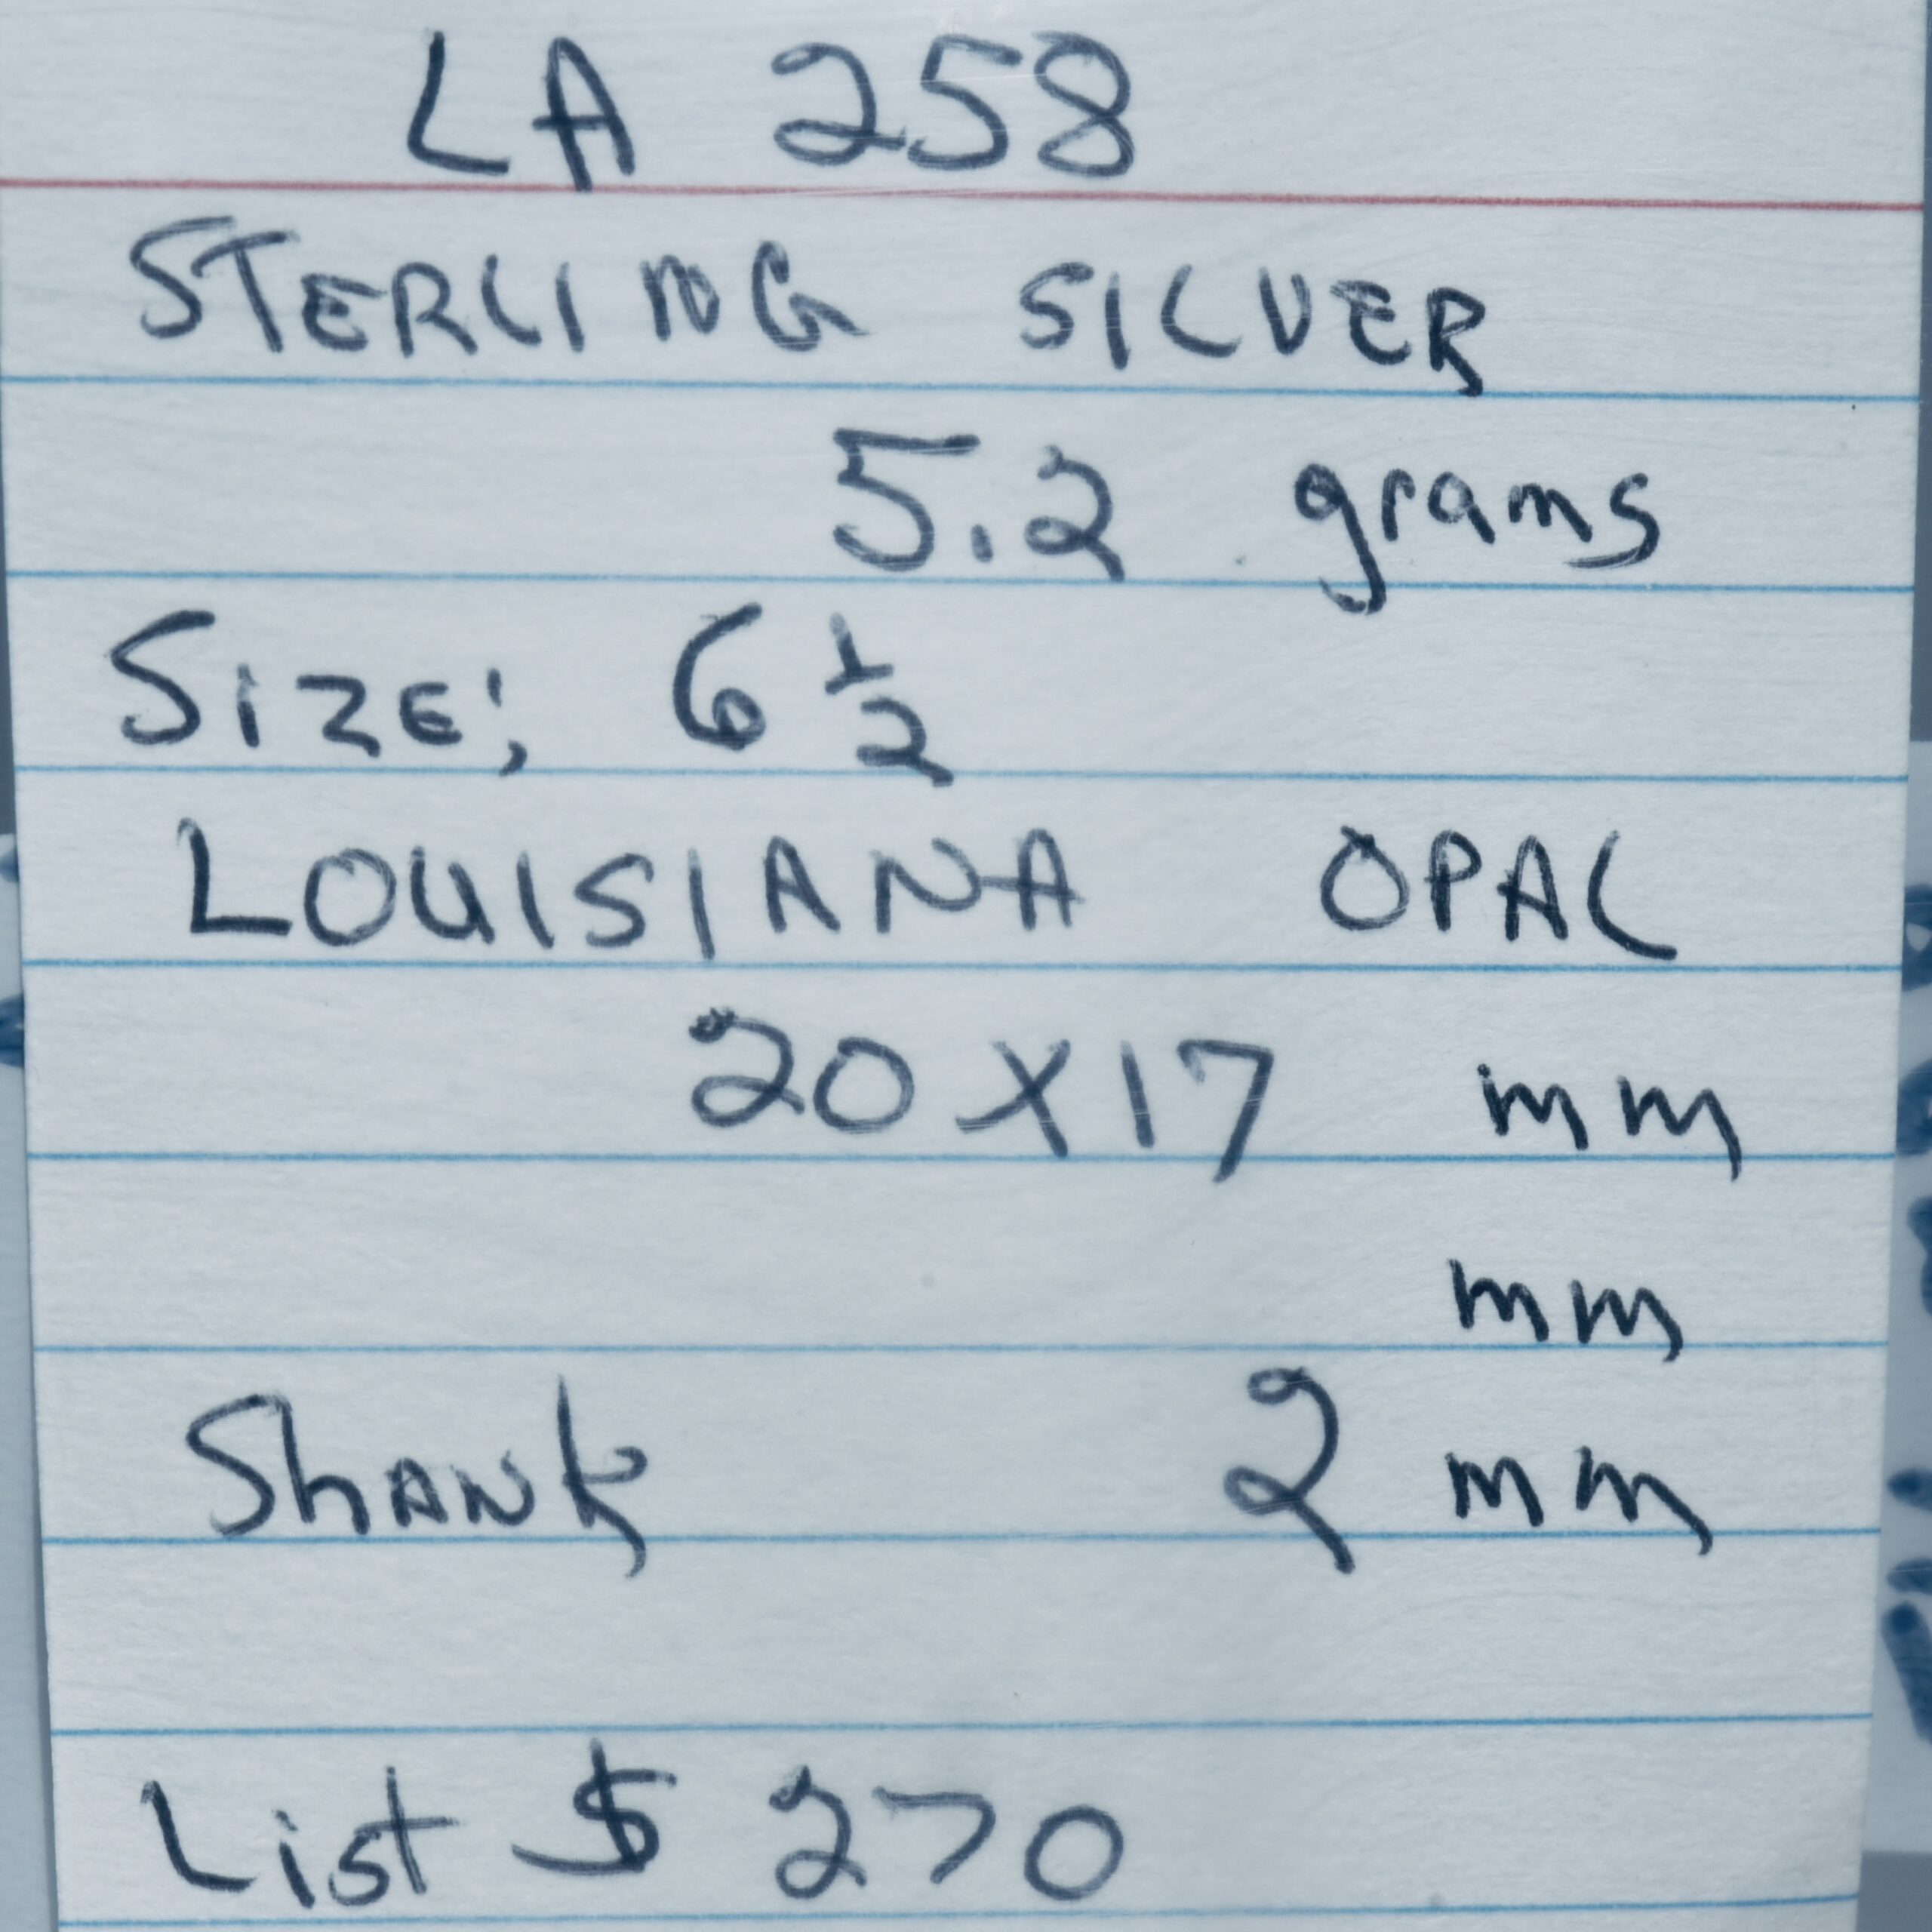 LA 258
STERLING SILVER
5.2 grams
SIZE; 6 1/2
LOUISIANA OPAL
20 X 17 mm
mm
ShANk 2 mm
List $ 270